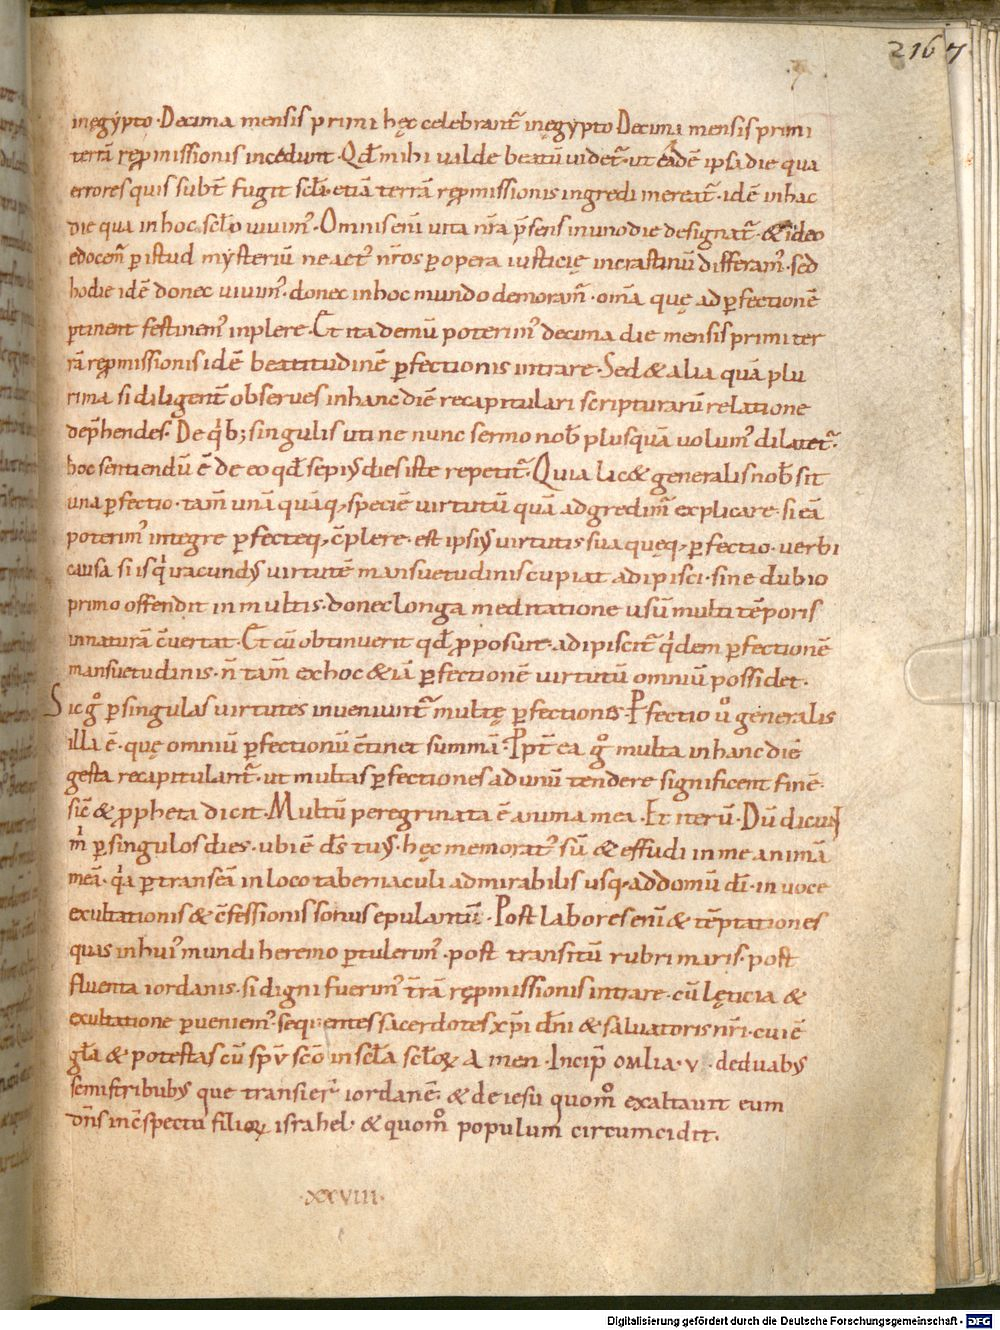 2167
inęgypto · Decima mensis primi hęc celebrant̄ inęgypto Decima mensis primi
terrā rep̄missionis incedunt · Qd̄ mihi valde beatū videt̄ · ut eadē ipsa die qua
errores quis subt̄ fugit sc̄li · etiā terrā rep̄missionis ingredi mereat̄ · idē in hac
die qua in hoc sc̄lo vivim᾿ · Omnis enī vita nr̄a p̄sens in uno die designat̄ · & ideo
edocem̄ p istud mysteriū ne act᾿ nr̄os p opera iusticię incrastinū differam᾿ · sed
hodie idē donec vivim᾿ · donec in hoc mundo demoram̄ · om̄a quę ad pfectionē
ptinent festinem᾿ inplere · Et ita demū poterim᾿ decima die mensis primi ter
rā rep̄missionis idē beatitudinē pfectionis intrare · Sed & alia quā plu
rima si diligent̄ observes in hanc diē recapitulari scripturarū relatione
dep̄hendes · De qib; singulis uti ne nunc sermo nob̄ plusquā volum᾿ dilatet̄ ·
hoc sentiendū ē de eo qd̄ sepius dies iste repetit̄ · Quia lic& generalis nob̄ sit
una pfectio · tam̄ unā quāq, speciē virtutū quā adgredim̄ explicare · si eā
poterim᾿ integre pfecteq, c̄plere · est ipsius virtutis sua quęq, pfectio · verbi
causa si isq iracundus virtutē mansuetudinis cupiat adipisci · sine dubio
primo offendit in multis · donec longa meditatione usū multi tēporis
in naturā c̄vertat · Et cū obtinuerit qd̄ pposuit · adipiscit̄ qidem pfectionē
mansuetudinis · n̄ tam̄ ex hoc & iā pfectionē virtutū omniū possidet ·
Sic g° p singulas virtutes inveniunt̄ multę pfectiones · Pfectio v° generalis
illa ē · quę omniū pfectionū c̄tinet summā · Ppt̄ ea g° multa in hanc diē
gesta recapitulant̄ · ut multas pfectiones ad unū tendere significent finē ·
sic̄ & ppheta dicit · Multū peregrinata ē anima mea · Et iterū · Dū dicun
t̄ m p singulos dies · ubi ē ds̄ tuus · hęc memorat᾿ sū & effudi in me animā
meā · qia ptranseā in loco tabernaculi admirabilis usq, ad domū dī · in voce
exultationis & c̄fessionis sonus epulantiū · Post labores enī & tēptationes
quas in hui᾿ mundi heremo ptulerim᾿ · post transitū rubri maris · post
fluenta iordanis · si digni fuerim᾿ t̄rā rep̄missionis intrare · cū lęticia &
exultatione pveniem᾿ · sequentes sacerdotes xp̄i dn̄i & salvatoris nr̄i · cui ē
gl̄a & potestas cū sp̄u sc̄o in sc̄la sc̄loꝝ Amen · Incip̄ omlia · v · de duabus
semis tribubus que transier̄ iordanē · & de iesu quom° exaltavit eum
dn̄s in c̄spectu filioꝝ israhel · & quom° populum circumcidit ·
· xxviii ·
Digitalisierung gefördert durch die Deutsche Forschungsgemeinschaft - DFG